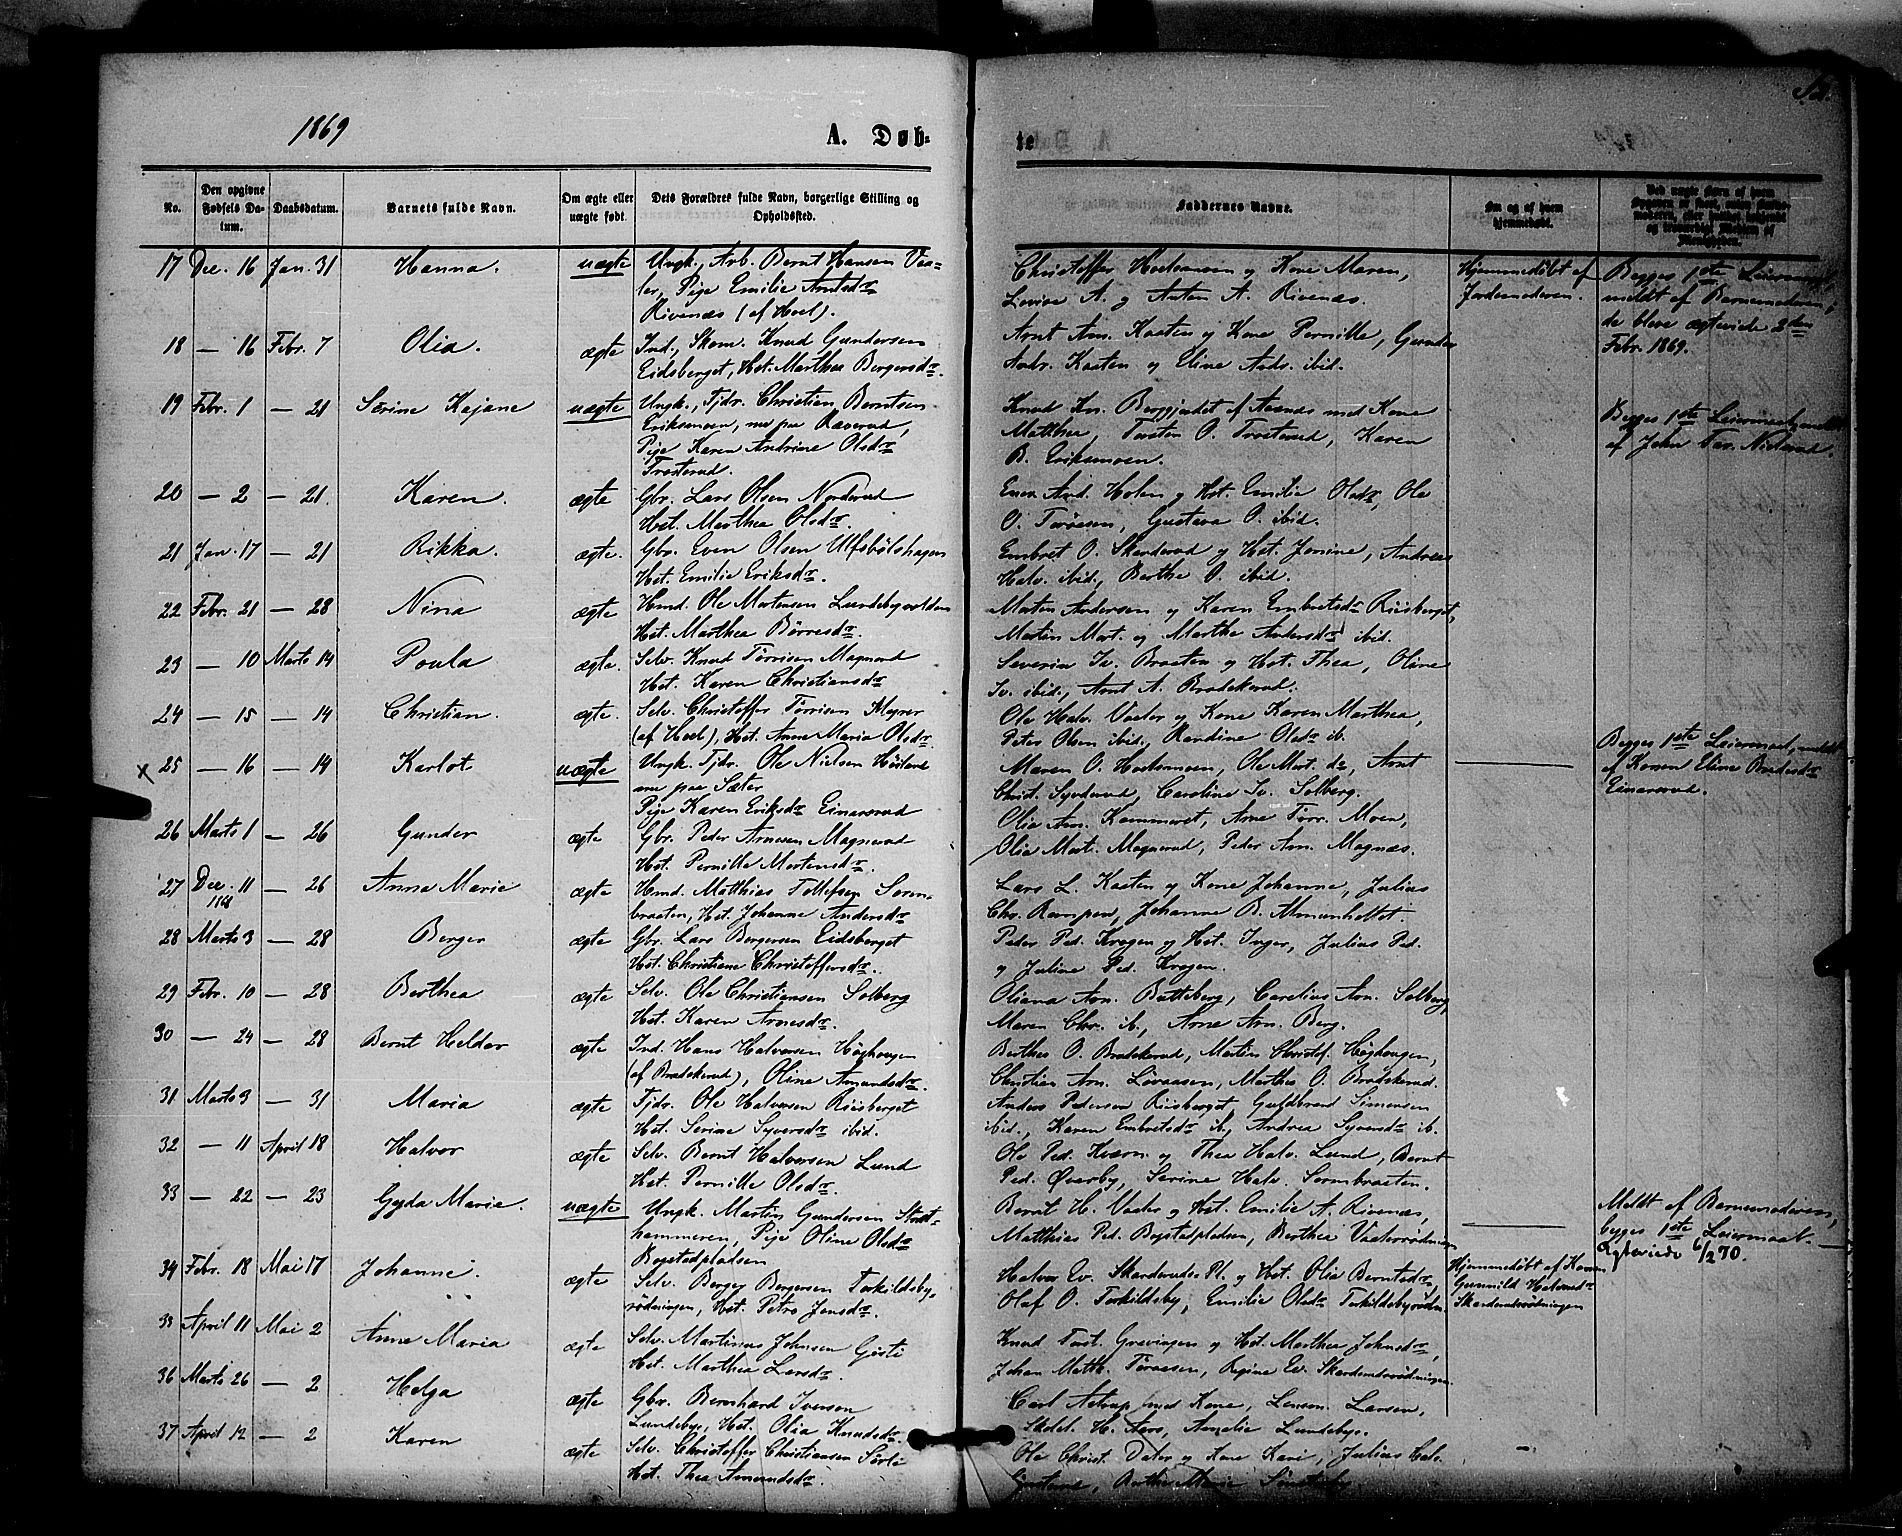 1869
A. Døb-
te
No.
Den opgivne Fødsels Datum.
Daabsdatum.
Barnets fulde Navn.
Om ægte eller uægte født.
Dets Forældres fulde Navn, borgerlige Stilling og Opholdssted.
Faddernes Navne.
Om og af hvem hjemmedøbt.
17 Dec. 16 Jan. 31 Hanna. uægte Ungk., Arb. Bernt Hansen Vaa-
ler, Pige Emilie Arntsdr
Rivenæs (af Hoel).
Christoffer Hoelsmoen og Kone Maren,
Lovise A. og Anton A. Rivenæs.
Hjemmedöbt af
Jordemoderen.
Begges 1ste Leiermaal,
meldt af Barnemoderen,
de bleve ægteviede 2den
Febr. 1869.
18 — 16 Febr. 7 Olia. ægte Ind., Skom. Knud Gundersen
Eidsberget, Hst. Marthea Bergersdr.
Arnt Arn. Kasten og Kone Pernille, Gunder
Andr. Kasten og Eline Ands. ibid.
19 Febr. 1 — 21 Serine Kajane uægte Ungk., Tjdr. Christian Berntsen
Eriksmoen, nu paaRæverud,
Pige Karen Andrine Olsdr
Trosterud.
Knud Kn. Berggjedet af Aasnæs med Kone
Matthea, Torsten O. Trosterud, Karen
B. Eriksmoen.
Begges 1ste Leiermaal, meldt
af John
20 — 2 — 21. Karen. ægte Gbr. Lars Olsen Norderud
Hst. Marthea Olsdr.
Even And. Holen og Hst. Emilie Olsdr, Ole
O. Toraasen, Gustava O. ibid.
21 Jan. 17 — 21 Rikka. ægte. Gbr. Even Olsen Ulfsbölshagen
Hst. Emilie Eriksdr.
Embret O. Skarderud og Hst. Jonine, Andreas
Halv. ibid., Berthe O. ibid.
22 Febr. 21 — 28 Nina ægte Hmd. Ole Mortensen Lundebyvolden
Hst. Marthea Börresdr.
Morten Andersen og Karen Embretsdr Riisberget,
Martin Mort. og Marthe Andersdr ibid.
23 — 10 Marts 14 Poula ægte. Selv. Knud Törrisen Magnerud
Hst. Karen Christiansdr
Severin Iv. Braaten og Hst. Thea, Oline
Iv. ibid., Arnt A. Bradskerud.
24 — 15 — 14 Christian. ægte. Selv. Christoffer Törrisen Myrer
(af Hoel), Hst. Anne Maria Olsdr
Ole Halv. Vaaler og Kone Karen Marthea,
Peter Olsen ibid. Randine Olsdr ib.
x 25 — 16 — 14 Karlot uægte Ungk. Tjdr. Ole Nielsen
nu paa Sæter
Pige Karen Eriksdr Einarsrud
Maren O. Hoelsmoen, Ole Mort. do, Arnt
Christ. Synderud, Caroline Iv. Solberg.
Begges 1ste Leiermaal, meldt
af Konen Eline
Einarsrud.
26 Marts 1 — 26 Gunder ægte Gbr. Peder Arnesen Magnerud
Hst. Pernille Mortensdr.
Olia Arn. Kammeret, Arne Törr. Moen,
Olia Mort. Magnerud, Peder Arn. Magnæs.
27 Dec. 11 — 26 Anna Marie ægte Hmd. Matthias Tollefsen Sorm-
braaten, Hst. Johanne Andersdr
Lars L. Kasten og Kone Johanne, Julius
Chr. Rampen, Johanne B.
28 Marts 3 — 28 Berger ægte Gbr. Lars Bergersen Eidsberget
Hst. Christiane Christoffersdr.
Peder Ped. Krogen og Hst. Inger, Julius Ped.
og Juline Ped. Krogen.
29 Febr. 10 — 28 Berthea ægte Selv. Ole Christiansen Solberg
Hst. Karen Arnesdr.
Oliana Arn. Batteberg, Carelius Arn. Solberg,
Maren Chr. ib., Arne Arn. Berg.
30 — 24 — 28 Bernt Heldor ægte Ind. Hans Halvorsen Høghaugen
(af Bradskerud), Oline Amundsdr.
Berthea O. Bradskerud, Martin Christof. Høghaugen,
Christian Arn. Lövaasen, Marthea O. Bradskerud.
31 Marts 3 — 31 Maria ægte Tjdr. Ole Halvorsen Riisberget
Hst. Serine Syversdr ibid.
Anders Pedersen Riisberget, Guldbrand Simensen
ibid., Karen Embretsdr ib., Andrea Syversdr ib.
32 — 11 April 18 Halvor ægte Selv. Bernt Halvorsen Lund
Hst. Pernille Olsdr.
Ole Ped. Kværn og Thea Halv. Lund, Bernt
Ped. Øverby, Serine Halv. Sormbraaten.
33 — 22 — 23 Gyda Marie. uægte Ungk. Martin Gundersen
hammeren, Pige Oline Olsdr
Bogstadpladsen
Bernt H. Vaaler og Hst. Emilie A. Rivenæs,
Matthias Ped. Bogstadpladsen, Berthea
Meldt af Barnemoderen,
begges 1ste Leiermaal.
Ægteviede 6/2 70.
34 Febr. 18 Mai 17 Johanne. ægte Selv. Berger Bergersen Torkildsby-
rødningen, Hst. Petra Jensdr.
Halvor Ev. Skarderuds Pl. og Hst. Olia Berntsdr,
Olaf O. Torkildsby, Emilie Olsdr
Hjemmedöbt af Konen
Gunnild
Skarderudsrødningen
35 April 11 Mai 2 Anne Maria ægte Selv. Martinus Johnsen
Hst. Marthea Larsdr.
Knud Tost. Grevingen og Hst. Marthea Johnsdr,
Johan Matth. Toraasen, Regine Ev. Skarderudsrødningen.
36 Marts 26 — 2 Helga ægte Gbr. Bernhard Iverson
Lundeby, Hst. Olia Knudsdr.
Carl Astrup med Kone, Lensm. Larsen,
Skolel. H. Aars, Amalie Lundeby.
37 April 12 — 2 Karen ægte Selv. Christoffer Christiansen Sörli
Hst. Thea Amundsdr.
Ole Christ. Daler og Kone Kari, Julius Halv.